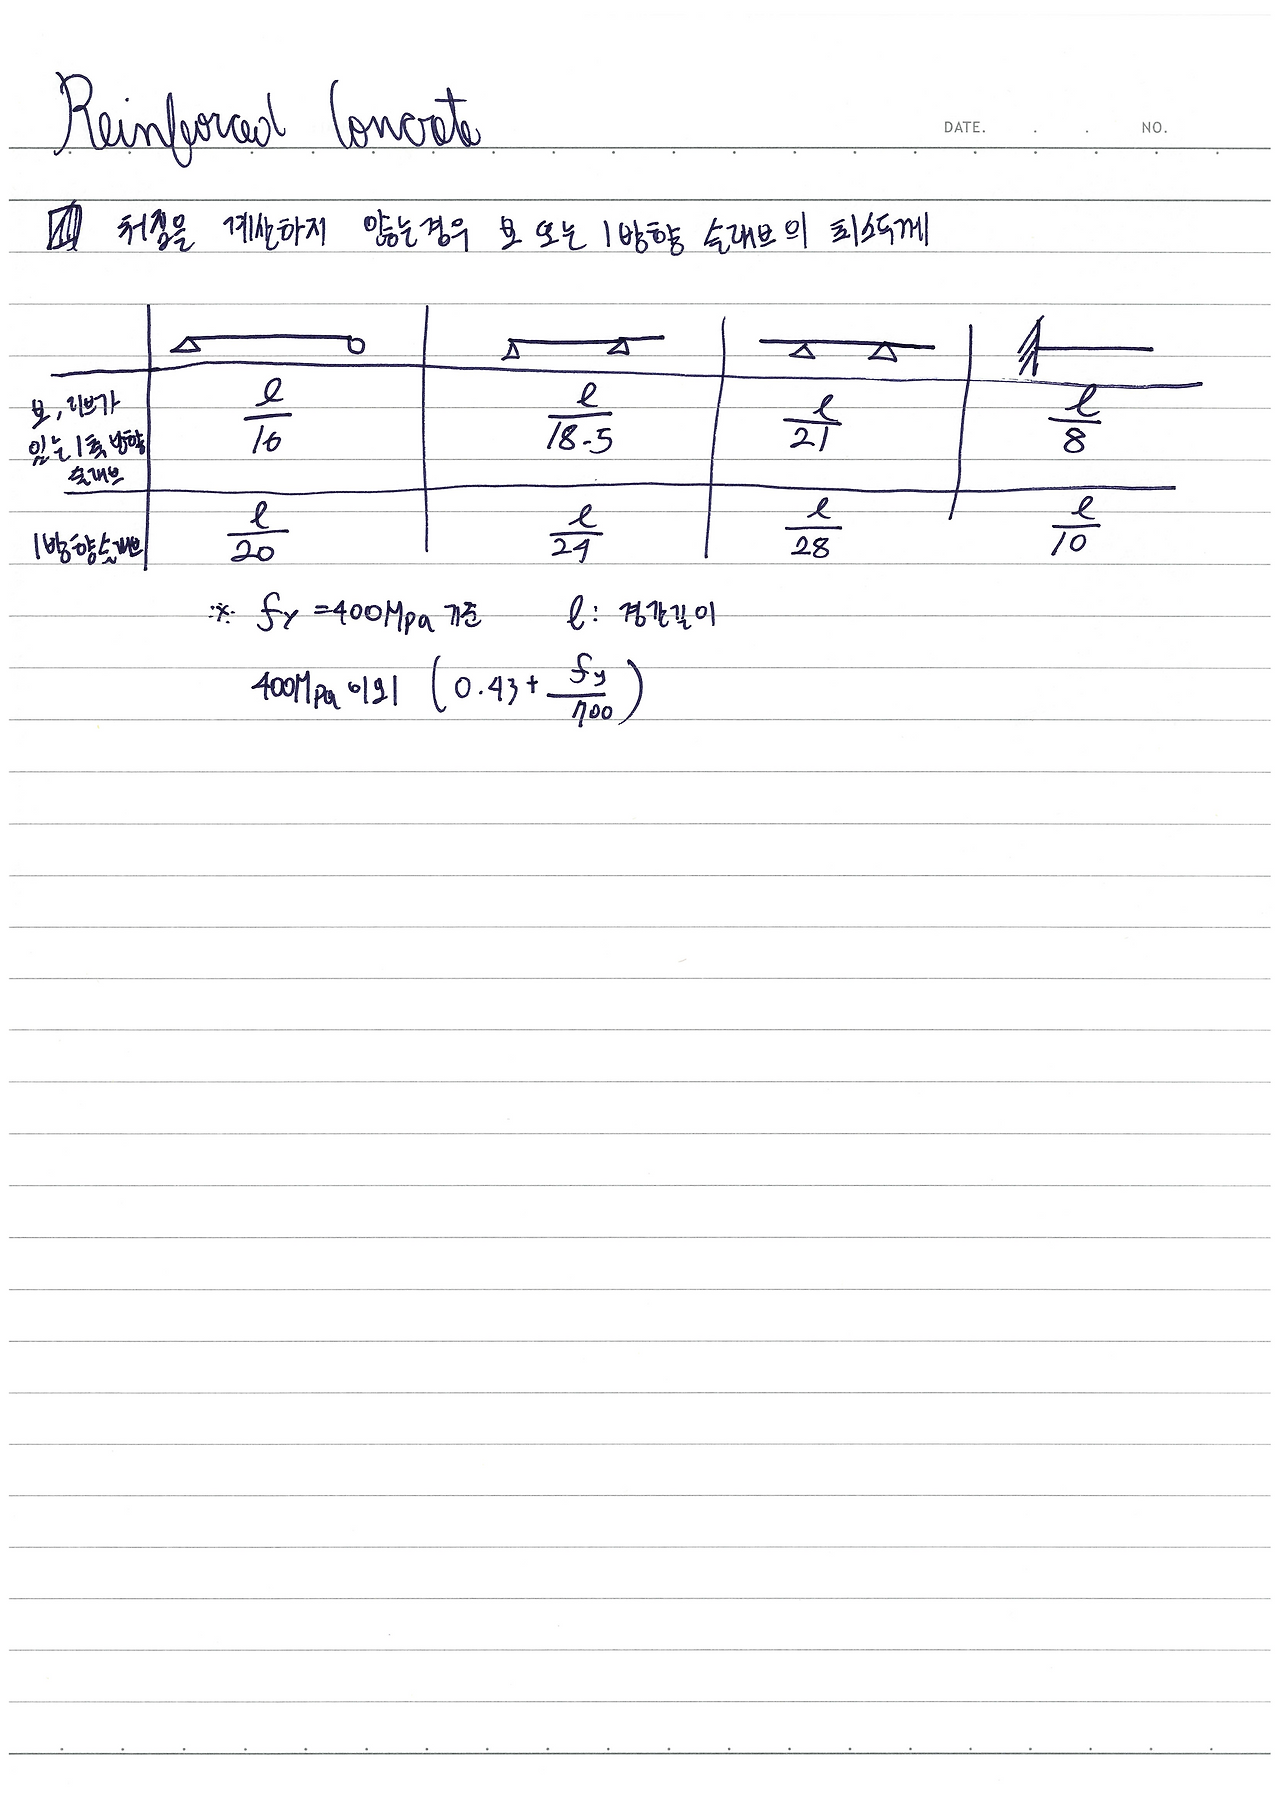 Reinforced Concrete
DATE. . . NO.
처짐을 계산하지 않는경우 보 또는 1방향 슬래브의 최소두께
보, 리브가 l/16 l/18.5 l/21 l/8
있는 1축 방향
슬래브
1방향슬래브 l/20 l/24 l/28 l/10
※ fy =400Mpa 기준 l: 경간길이
400Mpa 이외 (0.43+ fy/700)